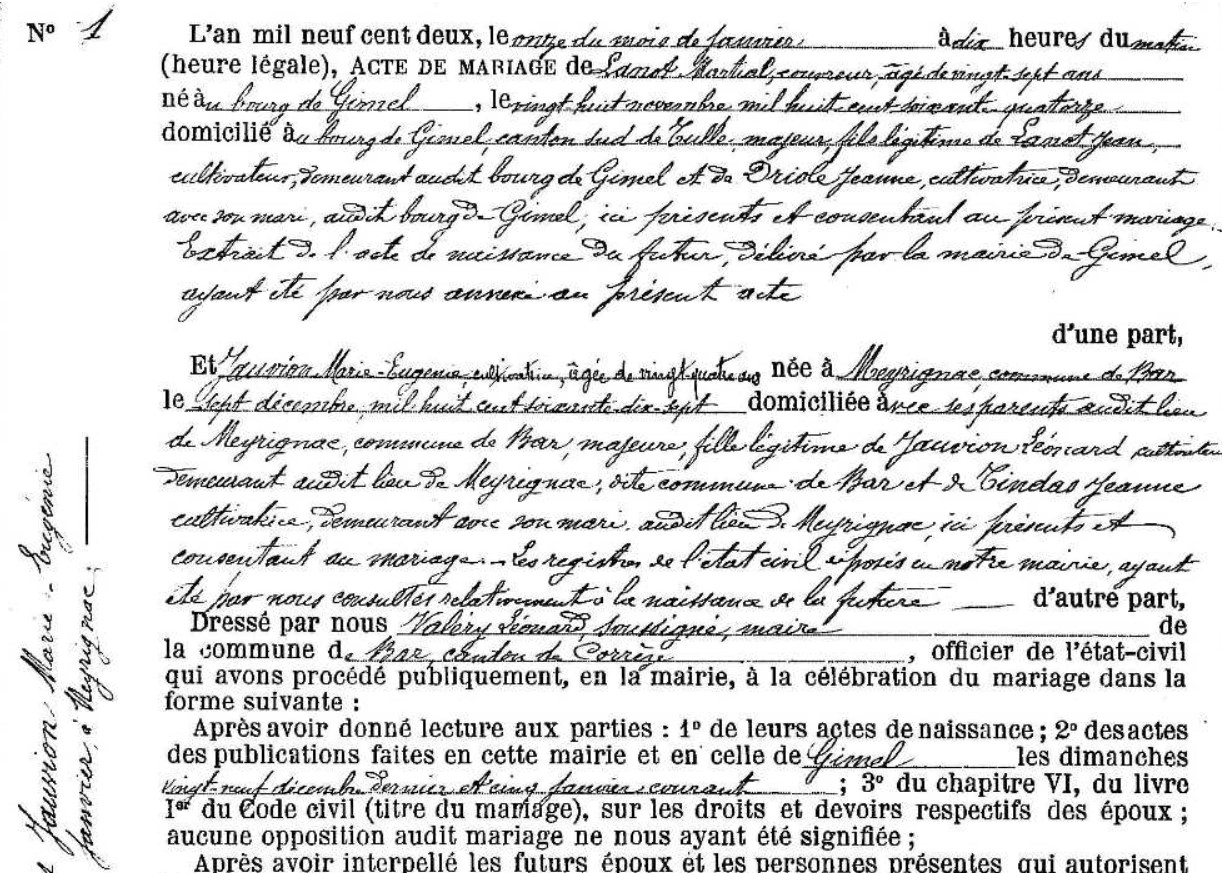 N° 1
L'an mil neuf cent deux, le onze du mois de janvier à dix heures du matin
(heure légale), ACTE DE MARIAGE de Lanot Martial, couvreur, âgé de vingt-sept ans
né à u bourg de Gimel, le vingt huit novembre mil huit cent soixante quatorze
domicilié à u bourg de Gimel, canton sud de Tulle, majeur, fils légitime de Lanot Jean,
cultivateur, demeurant audit bourg de Gimel et de Driole Jeanne, cultivatrice, demeurant
avec son mari, audit bourg de Gimel, ici présents et consentant au présent mariage.
Extrait de l'acte de naissance du futur, délivré par la mairie de Gimel,
ayant été par nous annexé au présent acte
d'une part,
Et Jauvion Marie-Eugénie, cultivatrice, âgée de vingt quatre ans née à Meyrignac, commune de Bar
le sept décembre mil huit cent soixante-dix-sept domiciliée à vec ses parents audit lieu
de Meyrignac, commune de Bar, majeure, fille légitime de Jauvion Léonard cultivateur
demeurant audit lieu de Meyrignac, dite commune de Bar et de Tindas Jeanne
cultivatrice, demeurant avec son mari, audit lieu de Meyrignac, ici présents et
consentant au mariage. - Les registres de l'état civil déposés en notre mairie, ayant
été par nous consultés relativement à la naissance de la future d'autre part,
Dressé par nous Valéry Léonard, soussigné, maire de
la commune de Bar, canton de Corrèze, officier de l'état-civil
qui avons procédé publiquement, en la mairie, à la célébration du mariage dans la
forme suivante :
Après avoir donné lecture aux parties : 1° de leurs actes de naissance ; 2° des actes
des publications faites en cette mairie et en celle de Gimel les dimanches
vingt-neuf décembre dernier et cinq janvier courant ; 3° du chapitre VI, du livre
Ier du Code civil (titre du mariage), sur les droits et devoirs respectifs des époux ;
aucune opposition audit mariage ne nous ayant été signifiée ;
Après avoir interpellé les futurs époux et les personnes présentes qui autorisent
Jauvion Marie-Eugénie
janvier, à Meyrignac.